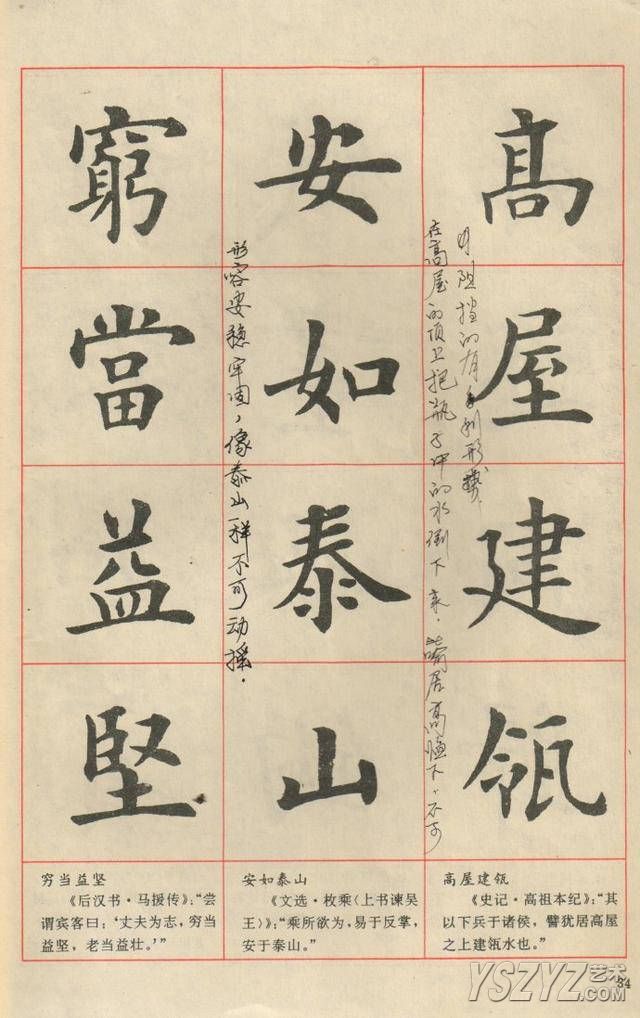 高屋建瓴
在高屋的顶上把瓶子中的水倒下来，喻居高临下，不可
阻挡的有利形势
安如泰山
形容安稳牢固，像泰山一样不可动摇．
窮當益堅
高屋建瓴
《史记·高祖本纪》：“其
以下兵于诸侯，譬犹居高屋
之上建瓴水也。”
安如泰山
《文选·枚乘〈上书谏吴
王〉》：“乘所欲为，易于反掌，
安于泰山。”
穷当益坚
《后汉书·马援传》：“尝
谓宾客曰：‘丈夫为志，穷当
益坚，老当益壮。’”
34
YSZYZ艺术
.COM